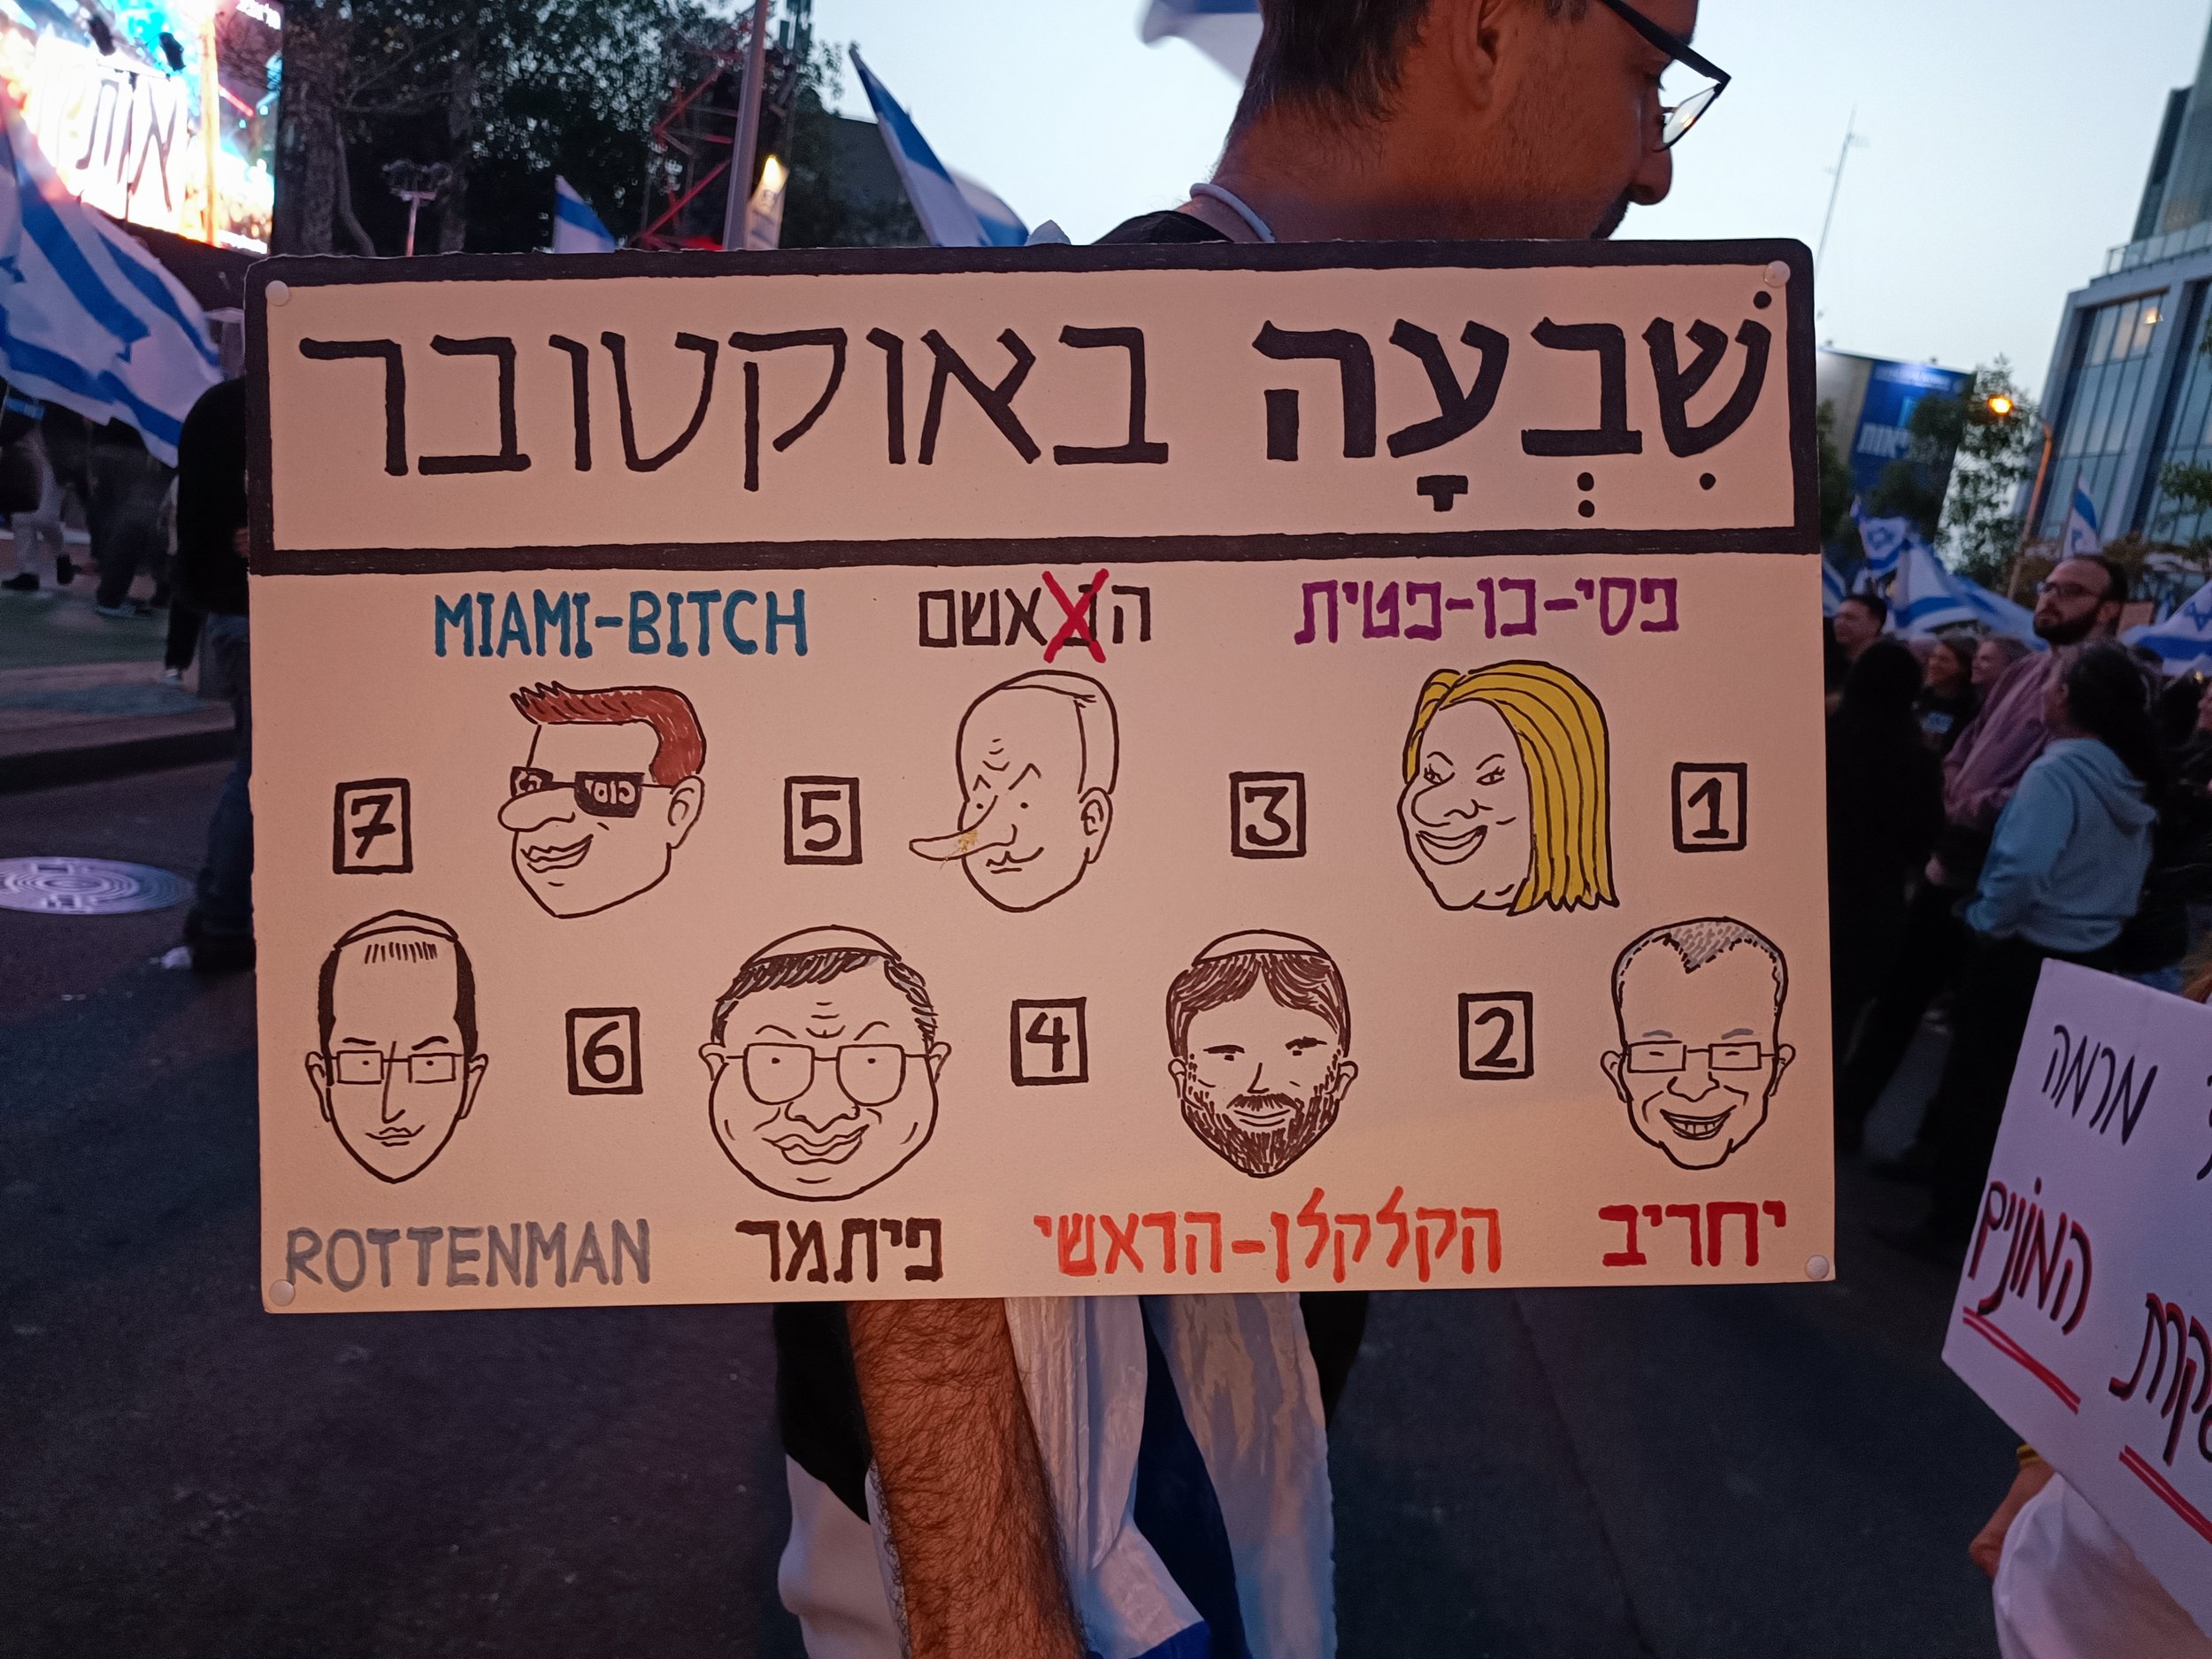 שִׁבְעָה באוקטובר
פסי-כו-פטית
הנאשם
MIAMI-BITCH
1
3
5
7
2
4
6
יחריב
הקלקלן-הראשי
פיתמר
ROTTENMAN
מרמה